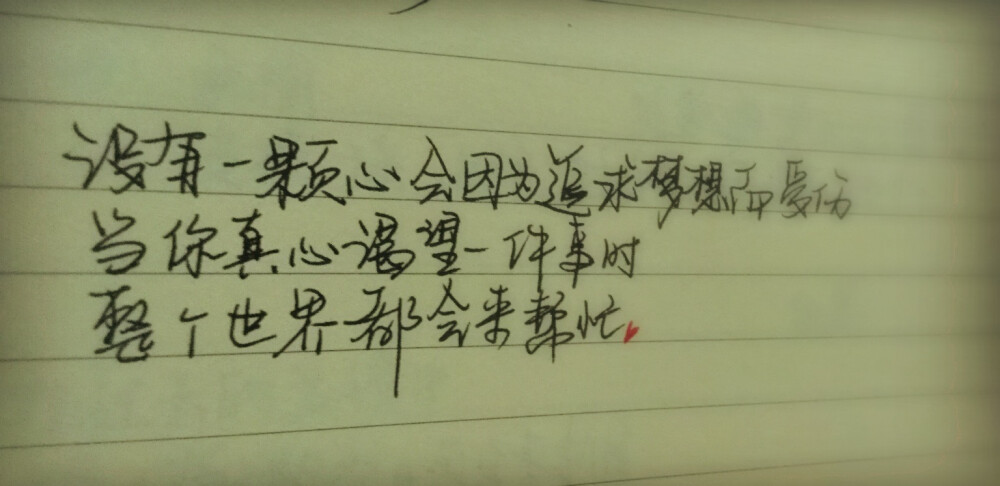 没有一颗心会因为追求梦想而受伤
当你真心渴望一件事时
整个世界都会来帮忙